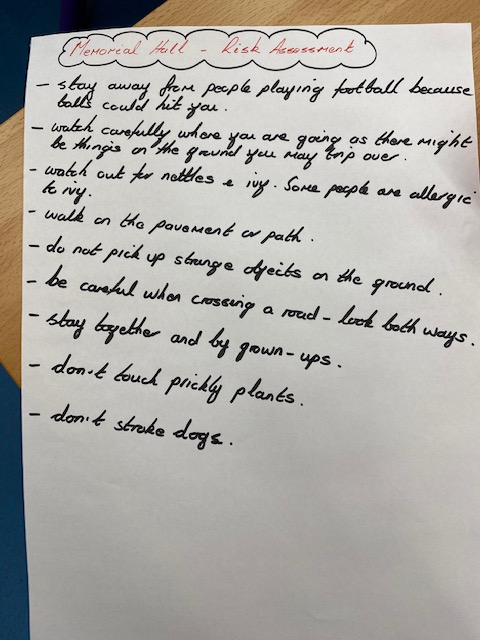 Memorial Hall - Risk Assessment
- stay away from people playing football because
balls could hit you.
- watch carefully where you are going as there might
be things on the ground you may trip over.
- watch out for nettles & ivy. Some people are allergic
to ivy.
- walk on the pavement or path.
- do not pick up strange objects on the ground.
- be careful when crossing a road - look both ways.
- stay together and by grown-ups.
- don't touch prickly plants.
- don't stroke dogs.